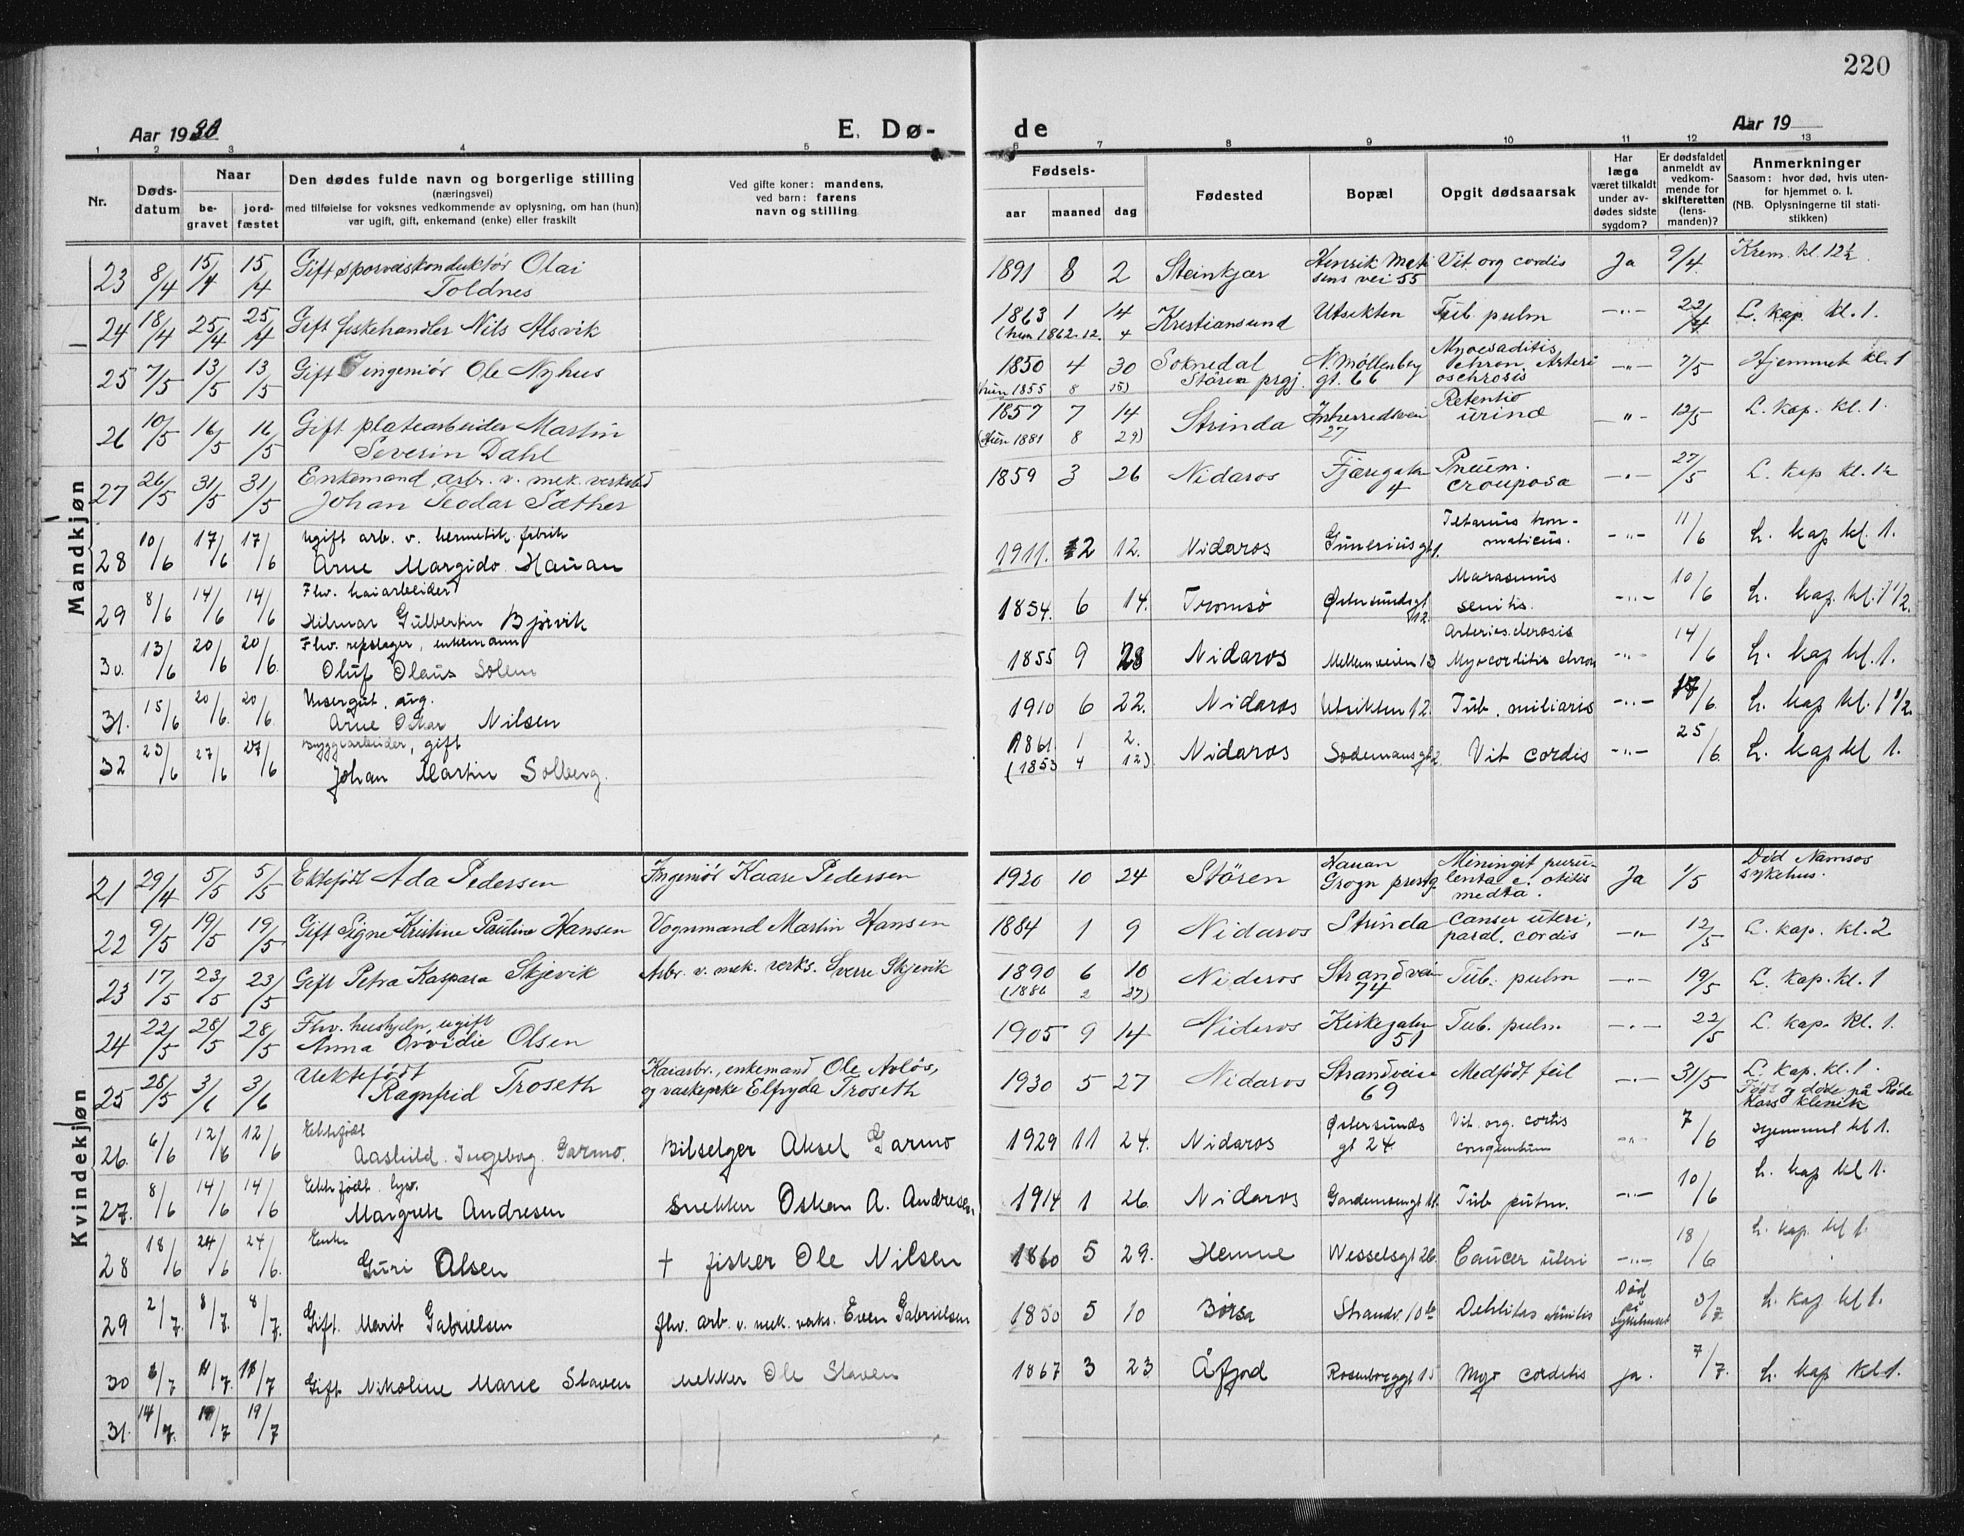 220
Aar 1930 E. Dø-
de Aar 19
1 2 3 4 5
6 7 8 9 10 11 12 13
Nr. Døds-datum Naar be-gravet jord-fæstet
Den dødes fulde navn og borgerlige stilling
(næringsvei)
med tilføielse for voksnes vedkommende av oplysning, om han (hun)
var ugift, gift, enkemand (enke) eller fraskilt
Ved gifte koner: mandens,
ved barn: farens
navn og stilling
Fødsels- aar maaned dag
Fødested Bopæl Opgit dødsaarsak
Har læge været tilkaldt under av-dødes sidste sygdom?
Er dødsfaldet anmeldt av vedkom-mende for skifteretten (lens-manden)?
Anmerkninger
Saasom: hvor død, hvis uten-
for hjemmet o. l.
(NB. Oplysningerne til stati-
stikken)
Mandkjøn
23 8/4 15/4 15/4 Gift sporveiskonduktør Olai
Toldnes
1891 8 2 Steinkjær Henrik Mat
sens vei 55 Vit. org cordis Ja 9/4 Krem. kl. 12½
24 18/4 25/4 25/4 Gift fiskehandler Nils Alsvik
1863 1 14 Kristiansund Utsikten Tub. pulm -"- 22/4 L. kap. kl. 1.
1862. 12. 4
25 7/5 13/5 13/5 Gift Ingeniør Ole Nyhus
1850 4 30 Soknedal
Støren prgj. N. Møllenberg
gt. 66 chron. Arteri
-"- 7/5 Hjemmet kl. 1
1855 8 15)
26 10/5 16/5 16/5 Gift platearbeider Martin
Severin Dahl
1857 7 14 Strinda Innherredsvei
27 Retentio
urinæ -"- 12/5 L. kap. kl. 1.
1881 8 29)
27 26/5 31/5 31/5 Enkemand, arb. v. mek. verksted
Johan Teodor Sæther
1859 3 26 Nidaros Fjæregaten
4 Pneum.
crouposa -"- 27/5 L. kap kl. 12
28 10/6 17/6 17/6 Ugift arb. v. hermetik fabrik
Arne Margido Hauan
1911. 12 12. Nidaros Gunerius gt 1. Tetanus trau-
maticus. -"- 11/6 L. kap kl. 1.
29 8/6 14/6 14/6 Fhv. kaiarbeider
Hilmar Gulbertin Bjørvik
1854. 6 14. Tromsø Østersundsgt
12. Marasmus
senilis. -"- 10/6 L. kap. kl. 1 1/2.
30. 13/6 20/6 20/6. Fhv. repslager, enkemann
Oluf Olaus Solem
1855 9 28 Nidaros Mellemveien 13 Myocorditis chron -"- 14/6 L. kap kl. 1.
31. 15/6 20/6. 20/6. Visergut, ug.
Arne Oskar Nilsen
1910 6 22. Nidaros Utsikten 12. Tub. miliaris -"- 17/6 L. kap kl. 1 1/2.
32 23/6 27/6 27/6 Byggearbeider, gift
Johan Martin Solberg.
1861 1 2. Nidaros Sodemansgt 2 Vit cordis -"- 25/6. L. kap kl 1.
(1853 4 12)
Kvindekjøn
21 29/4 5/5 5/5 Ektefødt Ada Pedersen Ingeniør Kaare Pedersen
1920 10 24 Støren Hauan
Grong prestg. Miningit puru-
lenta c. otitis
media. Ja 1/5 Død Namsos
sykehus.
22 9/5 19/5 19/5 Gift Signe Kristine Pauline Hansen Vognmand Martin Hansen
1884 1 9 Nidaros Strinda Canser uteri,
paral. cordis -"- 12/5 L. kap. kl. 2
23 17/5 23/5 23/5 Gift Petra Kaspara Skjevik Arb. v. mek. verks. Sverre Skjevik
1890 6 10 Nidaros Strandvei
74 Tub. pulm -"- 19/5 L. kap. kl. 1
(1886 2 27)
24 22/5 28/5 28/5 Fhv. hushjelp, ugift
Anna Ovidie Olsen
1905 9 14 Nidaros Kirkegaten
51 Tub. pulm. -"- 22/5 L. kap. kl. 1.
25 28/5 3/6 3/6 Uektefødt
Ragnfrid Troseth Kaiarbr., enkemand Ole Avløs,
og vaskepike Elfryda Troseth
1930 5 27 Nidaros Strandveien
69 Medfødt feil -"- 31/5 L. kap. kl. 1.
Født og døde på Røde
Kors klinik
26. 6/6 12/6 12/6 Ektefødt
Aashild. Ingebog. Garmo. Bilselger Aksel Garmo
1929 11 24. Nidaros Østersunds
gt 24 Vit. org. cortis
congenitum -"- 7/6 Hjemmet kl 1.
27. 8/6 14/6 14/6 Ektefødt
Margrete Andresen Snekker Oskar A. Andresen.
1914 1 26. Nidaros Gardemoensgt 11. Tub pulm. -"- 10/6 L. kap kl 1.
28 18/6 24/6 24/6. Enke
Guri Olsen † fisker Ole Nilsen
1860 5 29. Hemne Wesselsgt 26. Cancer uteri -"- 18/6 L. kap kl 1.
29 2/7. 8/7. 8/7. Gift. Marit Gabrielsen fhv. arb. v. mek. verks. Even Gabrielsen
1850 5 10 Børsa Strandv. 10 Debilitas senilis Død
på
sykehuset 3/7 L. kap kl 1.
30 6/7 11/7. 11/7 Gift. Nikoline Marie Slaven snekker Ole Slaven
1867 3 23 Åfjord Rosenborggt 15 Myo corditis ja. 7/7. L. kap kl 1.
31. 14/7. 19/7 19/7